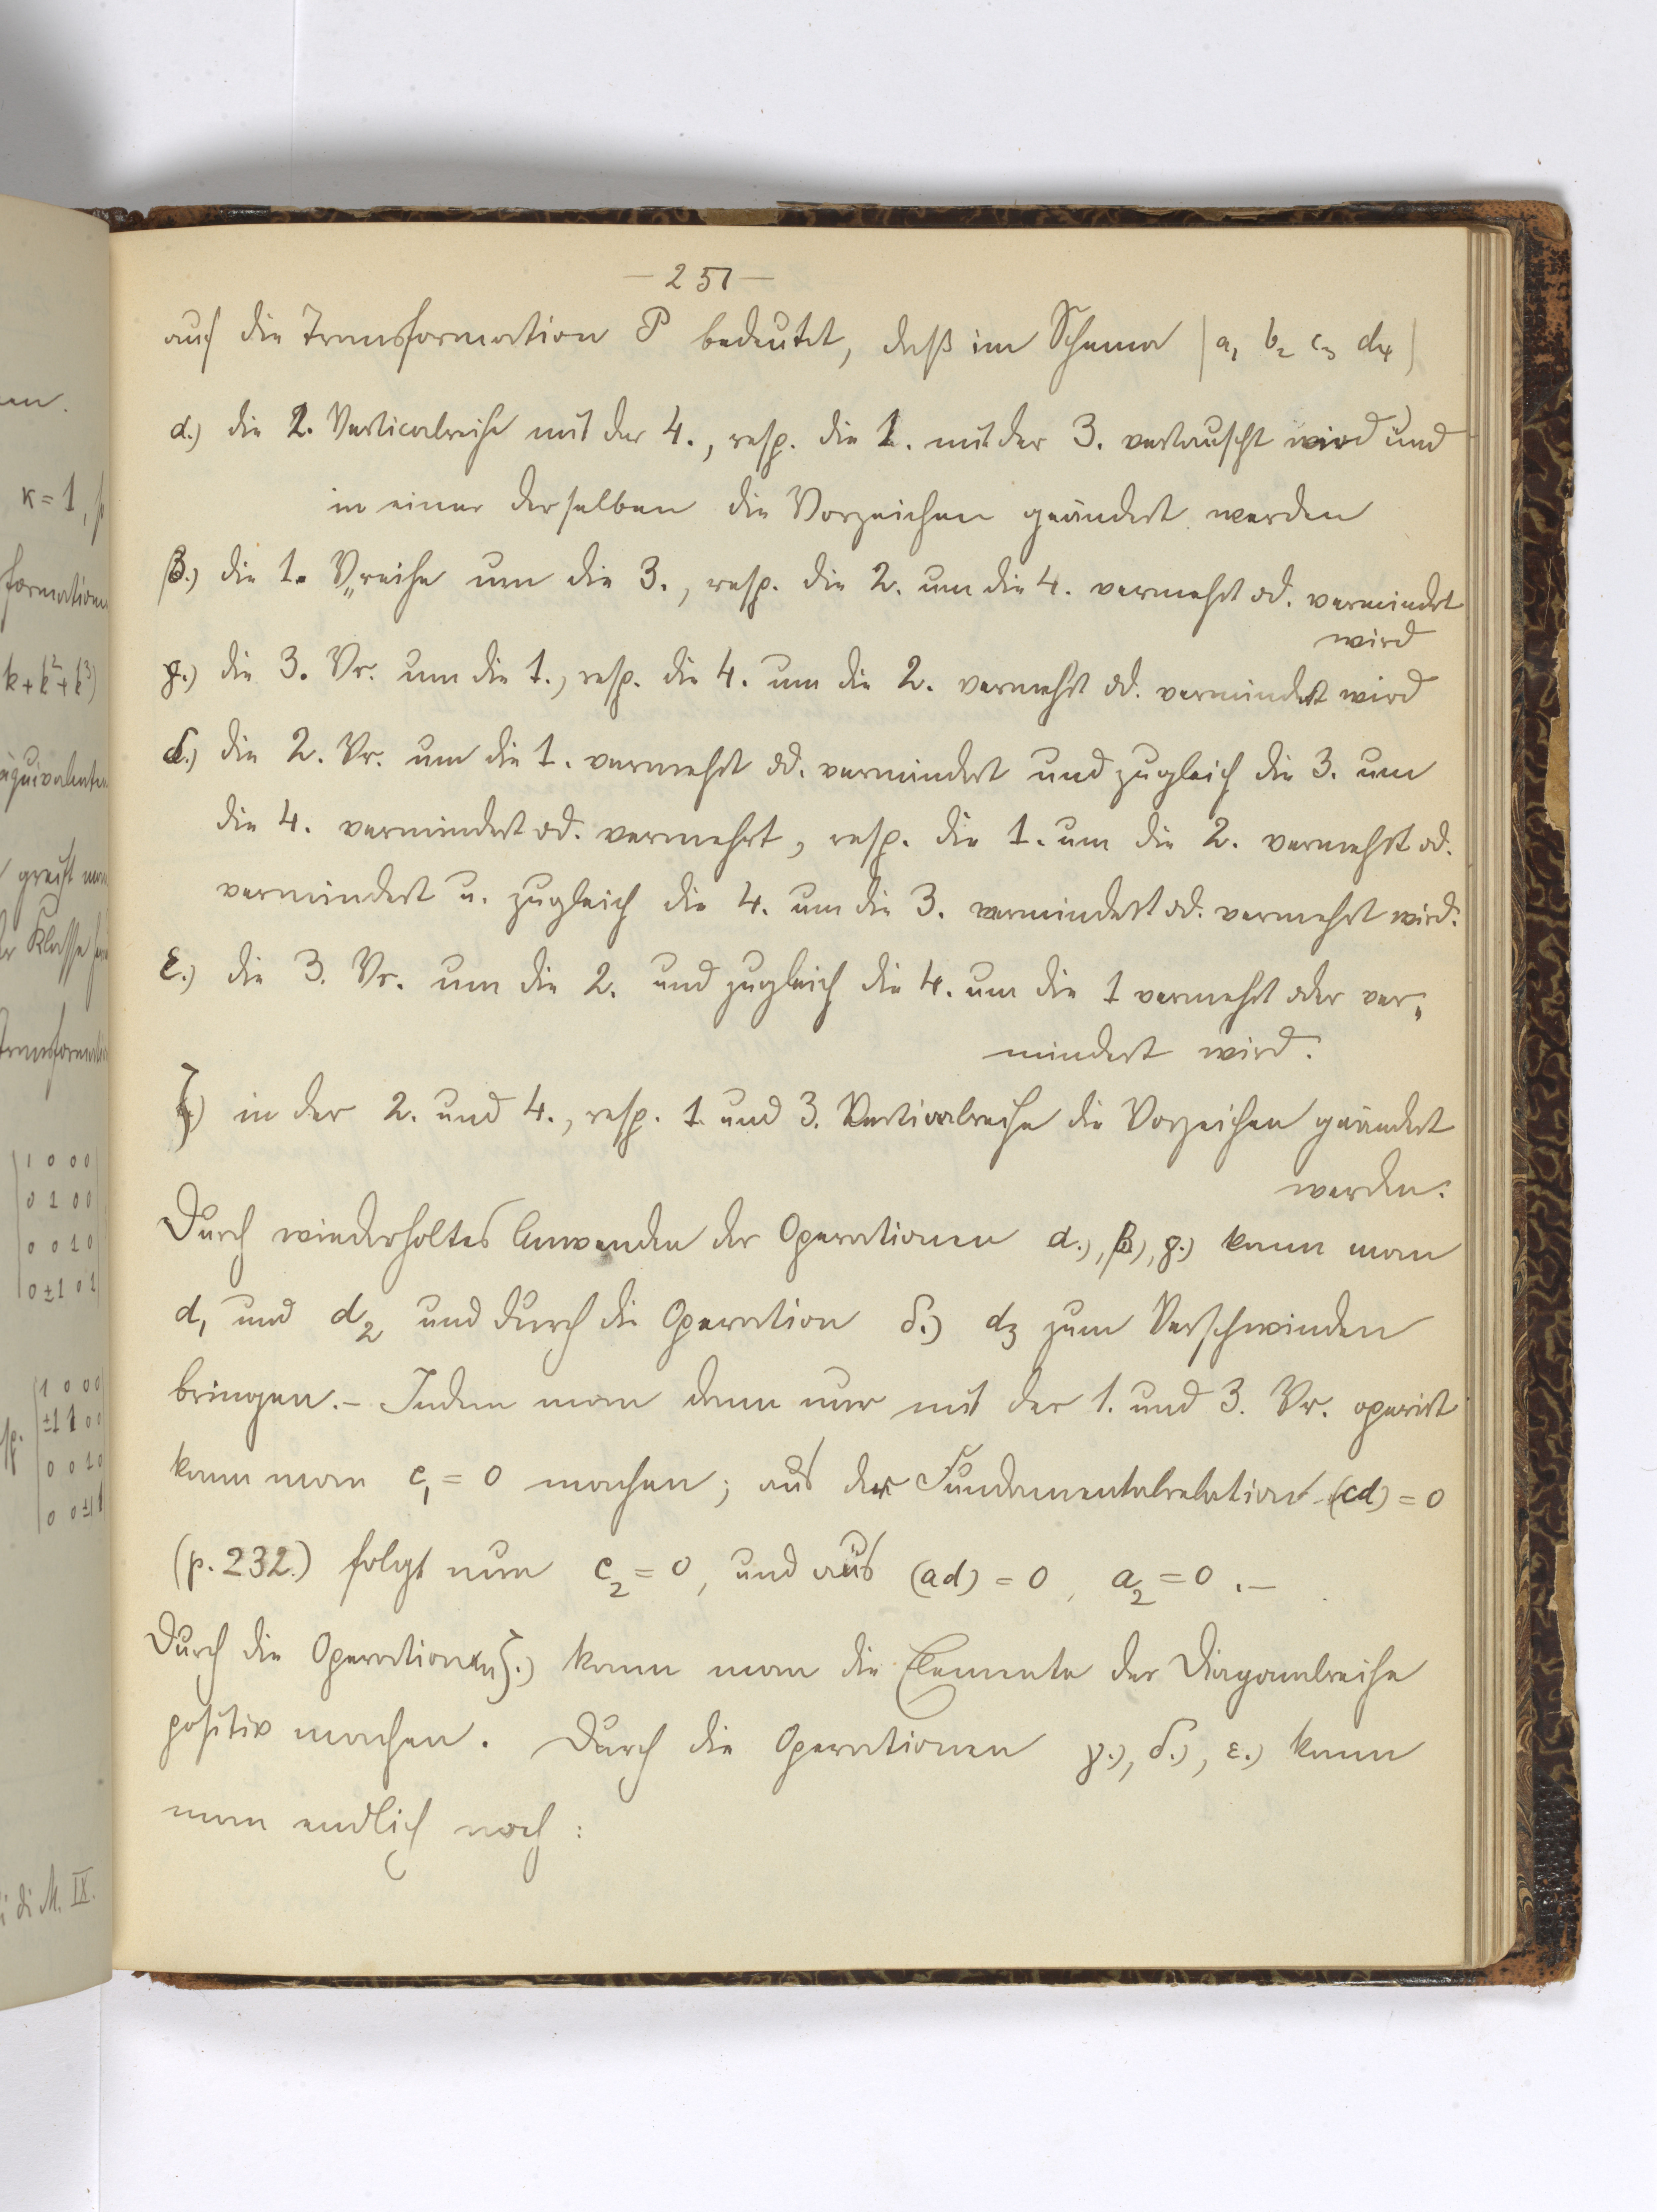 — 251 —
auf die Transformation P bedeutet, daß im Schema |a₁ b₂ c₃ d₄|
α.) die 2. Verticalreihe mit der 4., resp. die 1. mit der 3. vertauscht wird und
in einer derselben die Vorzeichen geändert werden
β.) die 1. V„reihe um die 3., resp. die 2. um die 4. vermehrt od. vermindert
wird
γ.) die 3. Vr. um die 1., resp. die 4. um die 2. vermehrt od. vermindert wird
δ.) die 2. Vr. um die 1. vermehrt od. vermindert und zugleich die 3. um
die 4. vermindert od. vermehrt, resp. die 1. um die 2. vermehrt od.
vermindert u. zugleich die 4. um die 3. vermindert od. vermehrt wird.
ε.) die 3. Vr. um die 2. und zugleich die 4. um die 1 vermehrt oder ver„
mindert wird.
ζ.) in der 2. und 4., resp. 1. und 3. Verticalreihe die Vorzeichen geändert
werden.
Durch wiederholtes Anwenden der Operationen α.), β.), γ.) kann man
d₁ und d₂ und durch die Operation δ.) d₃ zum Verschwinden
bringen. – Indem man dann nur mit der 1. und 3. Vr. operirt
kann man c₁ = 0 machen; aus der Fundamentalrelation (cd) = 0
(p. 232.) folgt nun c₂ = 0, und aus (ad) = 0, a₂ = 0. –
Durch die Operationen ζ.) kann man die Elemente der Diagonalreihe
positiv machen. Durch die Operationen γ.), δ.), ε.) kann
man endlich noch:
k = 1,
formation
k + k² + k³)
äquivalenten
Klasse
1 0 0 0
0 1 0 0
0 0 1 0
0 ±1 0 1
1 0 0 0
±1 1 0 0
0 0 1 0
0 0 ±1
di M. IX.